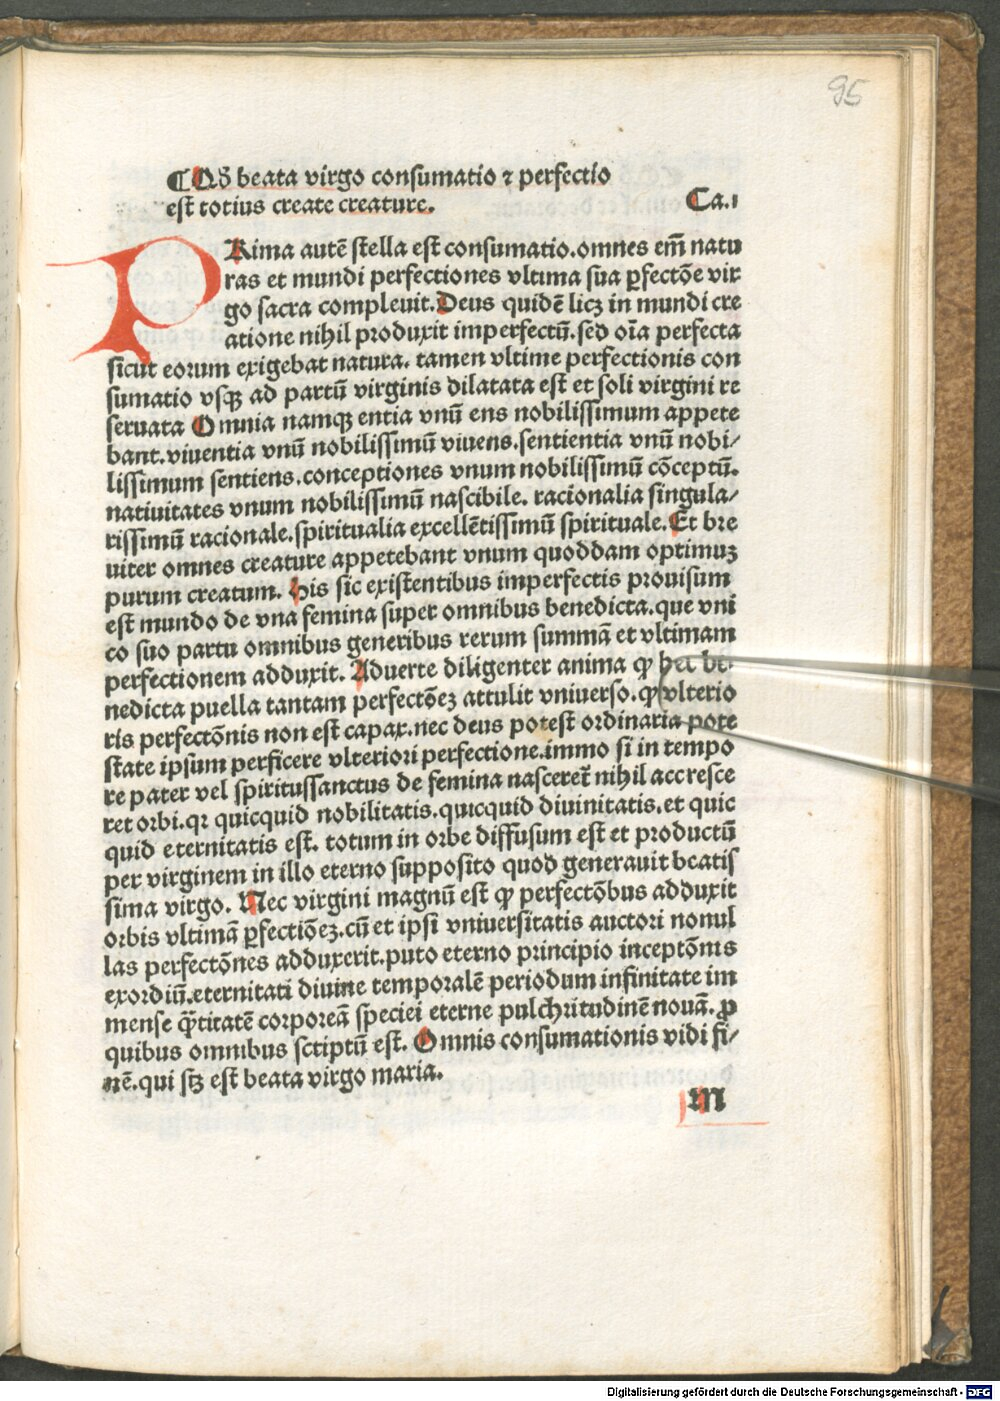 95
¶Qď beata virgo consumatio ⁊ perfectio
est totius create creature. Ca.i
PRima autē stella est consumatio.omnes em̄ natu
ras et mundi perfectiones vltima sua ꝑfectōe vir
go sacra compleuit.Deus quidē licꝫ in mundi cre
atione nihil produxit imperfectū.sed oīa perfecta
sicut eorum exigebat natura. tamen vltime perfectionis con
sumatio vsqꝫ ad partū virginis dilatata est et soli virgini re
seruata Omnia namqꝫ entia vnū ens nobilissimum appete
bant.viuentia vnū nobilissimū viuens.sentientia vnū nobi/
lissimum sentiens.conceptiones vnum nobilissimū cōceptū.
natiuitates vnum nobilissimū nascibile. racionalia singula/
rissimū racionale.spiritualia excellētissimū spirituale.Et bre
uiter omnes creature appetebant vnum quoddam optimuꝫ
purum creatum. His sic existentibus imperfectis prouisum
est mundo de vna femina super omnibus benedicta.que vni
co suo partu omnibus generibus rerum summā et vltimam
perfectionem adduxit. Aduerte diligenter anima ꝙ hec be-
nedicta puella tantam perfectōeꝫ attulit vniuerso.ꝙ vlterio
ris perfectōnis non est capax.nec deus potest ordinaria pote
state ipsum perficere vlteriori perfectione.immo si in tempo
re pater vel spiritussanctus de femina nasceret᷑ nihil accresce
ret orbi.qꝛ quicquid nobilitatis.quicquid diuinitatis.et quic
quid eternitatis est. totum in orbe diffusum est et productū
per virginem in illo eterno supposito quod generauit beatis
sima virgo. Nec virgini magnū est ꝙ perfectōbus adduxit
orbis vltimā ꝑfectiōeꝫ.cū et ipsi vniuersitatis auctori nonul
las perfectōnes adduxerit.puto eterno principio inceptōnis
exordiū.eternitati diuine temporalē periodum infinitate im
mense q̄titatē corporeā speciei eterne pulchritudinē nouā.ꝓ
quibus omnibus sctiptū est. Omnis consumationis vidi fi/
nē.qui sꝫ est beata virgo maria.
M
Digitalisierung gefördert durch die Deutsche Forschungsgemeinschaft - DFG